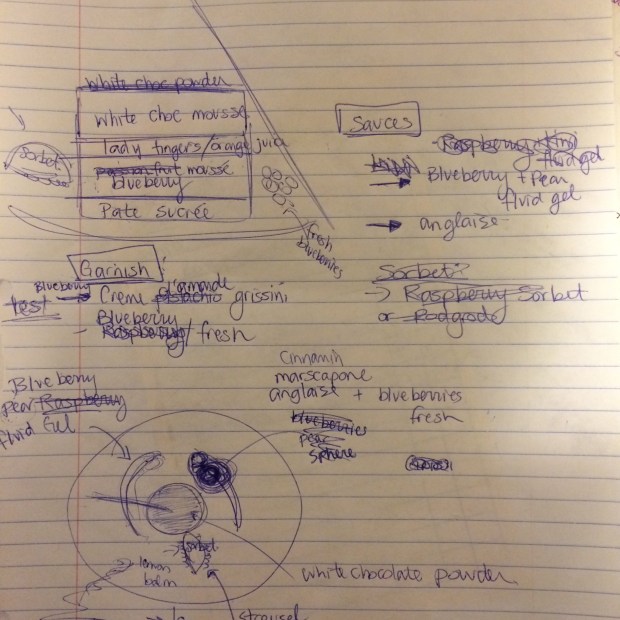 White choc powder
White choc mousse
lady fingers/orange juice
passion fruit mousse
blueberry
Pate sucrée
sorbet
fresh
blueberries
Sauces
Raspberry
fluid gel
Blueberry + Pear
fluid gel
anglaise
Garnish
Blueberry
test
Creme d'amande
pistachio grissini
Blueberry
Raspberry / fresh
Sorbet?
Raspberry Sorbet
or Rodgrode
Blueberry
pear Raspberry
fluid
Cinnamin
marscapone
anglaise + blueberries
fresh
blueberries
pear
sphere
sorbet
lemon
balm
white chocolate powder
streusel